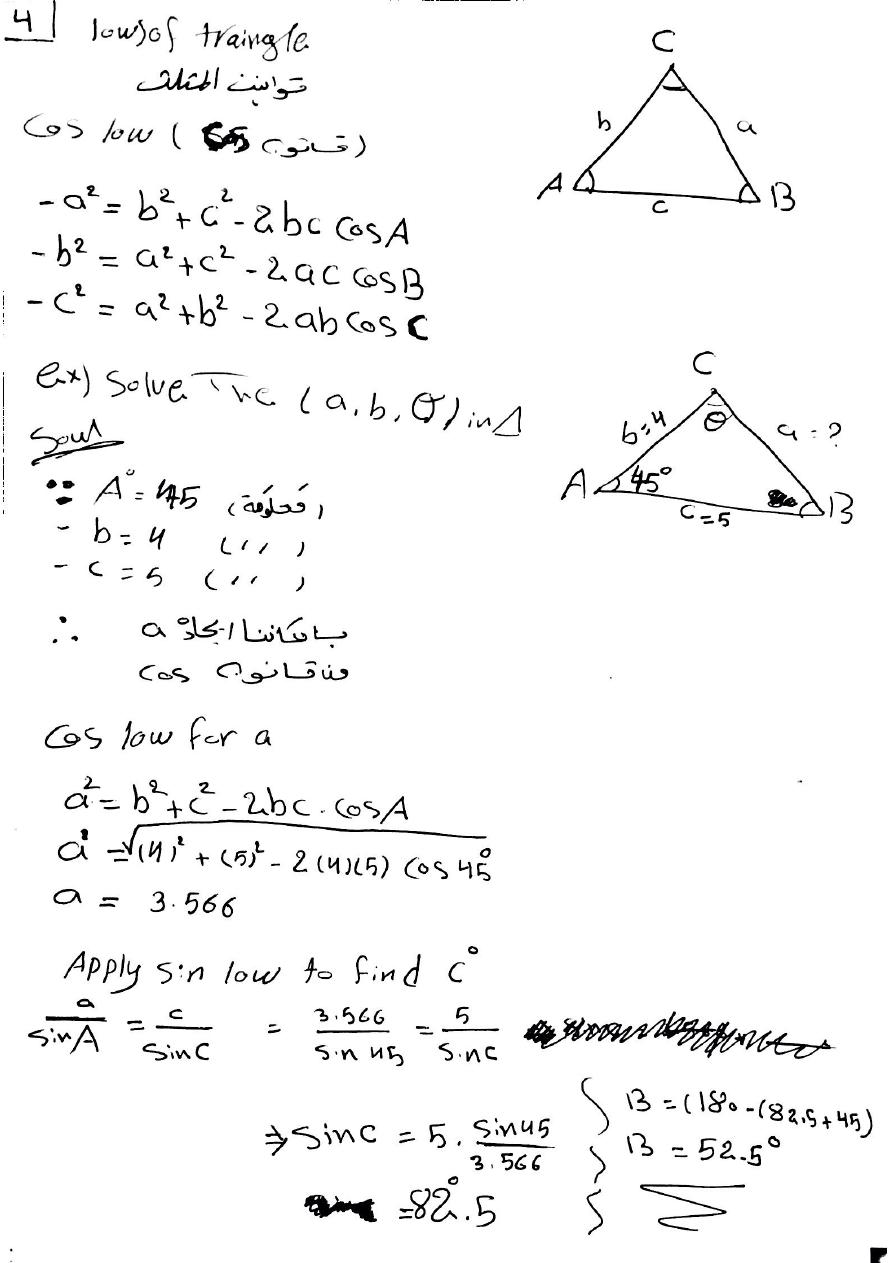 4
low)of traingle
قوانين المثلث
Cos low ( قانون )
- a² = b² + c² - 2bc cosA
- b² = a² + c² - 2ac cosB
- c² = a² + b² - 2ab cos C
C
b
a
A
c
B
ex) Solve The (a, b, θ) in Δ
Soul
∵ A° = 45 (معلومة)
- b = 4 (،،،)
- c = 5 (،،)
∴ بامكاننا ايجاد a
من قانون cos
C
θ
b=4
a = ?
A
45°
c = 5
B
Cos low for a
a² = b² + c² - 2bc . cosA
a = √(4)² + (5)² - 2(4)(5) cos 45°
a = 3.566
Apply sin low to find c°
a/sinA = c/sinC = 3.566/sin 45 = 5/sinC
⇒ sinC = 5 . sin45/3.566
= 82°.5
B = (180 - (82.5 + 45)
B = 52.5°